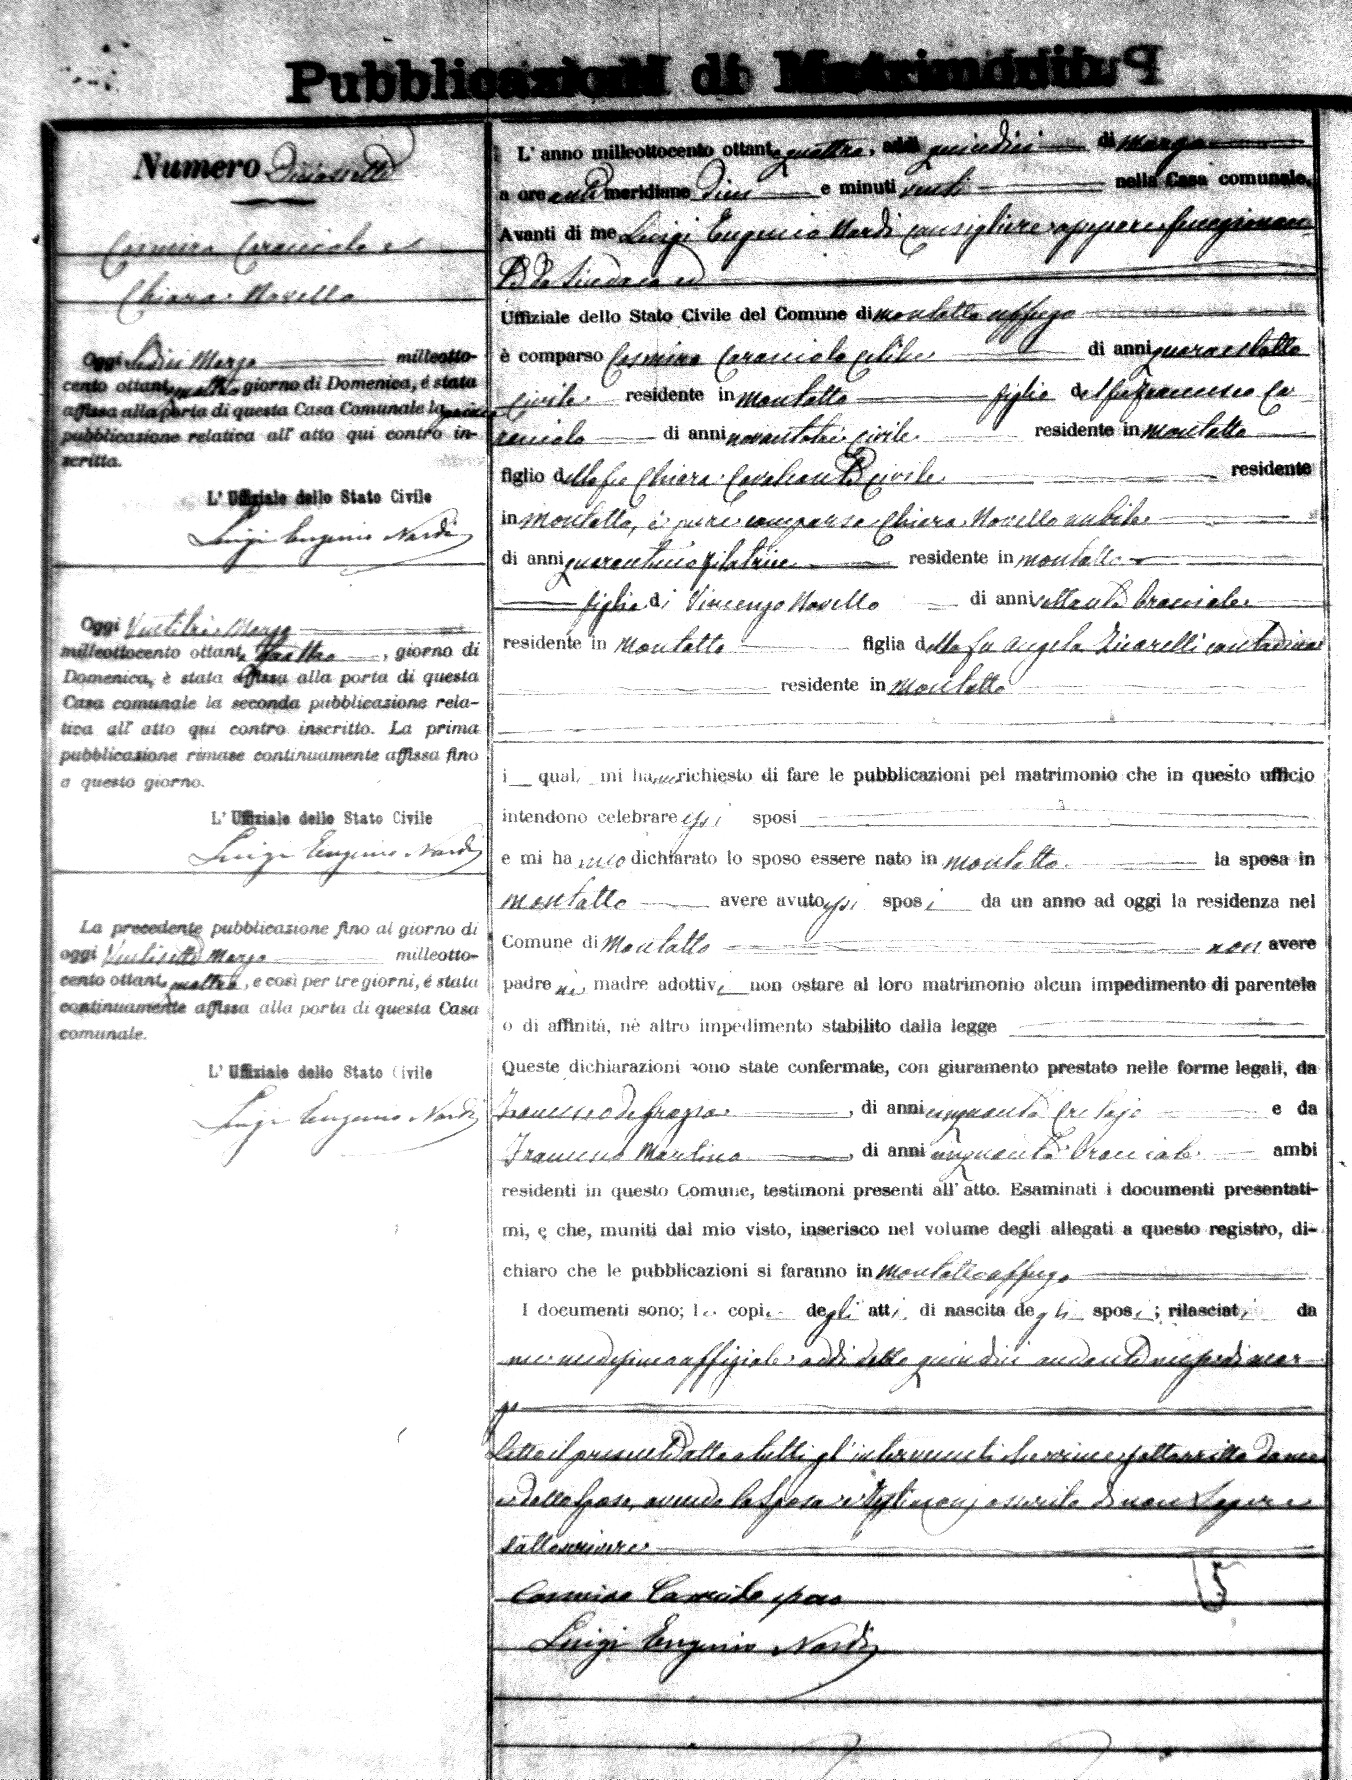 Pubblicazioni di Matrimonio
Numero Diciassette
Cosmino Caracciolo e
Chiara Novello
Oggi Sedici Marzo milleotto-
cento ottantaquattro giorno di Domenica, é stata
affissa alla porta di questa Casa Comunale la prima
pubblicazione relativa all' atto qui contro in-
scritta.
L' Uffiziale dello Stato Civile
Luigi Eugenio Nardi
Oggi Ventitre Marzo
milleottocento ottantaquattro, giorno di
Domenica, è stata affissa alla porta di questa
Casa comunale la seconda pubblicazione rela-
tiva all' atto qui contro inscritto. La prima
pubblicazione rimase continuamente affissa fino
a questo giorno.
L' Uffiziale dello Stato Civile
Luigi Eugenio Nardi
La precedente pubblicazione fino al giorno di
oggi Ventisette Marzo milleotto-
cento ottantaquattro, e così per tre giorni, é stata
continuamente affissa alla porta di questa Casa
comunale.
L' Uffiziale dello Stato Civile
Luigi Eugenio Nardi
L' anno milleottocento ottantaquattro, addì quindici di marzo
a ore antimeridiane dieci e minuti venti nella Casa comunale.
Avanti di me Luigi Eugenio Nardi Consigliere
da Sindaco ed
Uffiziale dello Stato Civile del Comune di Montalto Uffugo
è comparso Cosmino Caracciolo celibe di anni quarantotto
civile residente in Montalto figlio del fu Francesco Ca
racciolo di anni civile residente in Montalto
figlio della fu Chiara Cavalcanti civile residente
in Montalto, è pure comparsa Chiara Novello nubile
di anni quarantuno filatrice residente in Montalto
figlia di Vincenzo Novello di anni settanta bracciale
residente in Montalto figlia della fu Angela Zicarelli contadina
residente in Montalto
i quali mi hanno richiesto di fare le pubblicazioni pel matrimonio che in questo ufficio
intendono celebrare essi sposi
e mi hanno dichiarato lo sposo essere nato in Montalto la sposa in
Montalto avere avuto essi sposi da un anno ad oggi la residenza nel
Comune di Montalto non avere
padre nè madre adottivi non ostare al loro matrimonio alcun impedimento di parentela
o di affinità, nè altro impedimento stabilito dalla legge
Queste dichiarazioni sono state confermate, con giuramento prestato nelle forme legali, da
Francesco , di anni cinquanta e da
Francesco Martino , di anni cinquanta bracciale ambi
residenti in questo Comune, testimoni presenti all' atto. Esaminati i documenti presentati-
mi, e che, muniti dal mio visto, inserisco nel volume degli allegati a questo registro, di-
chiaro che le pubblicazioni si faranno in Montalto Uffugo
I documenti sono; le copie degli atti di nascita degli sposi; rilasciati da
me medesimo uffiziale addì detto quindici andante mese di mar
zo
Letto il presente atto a tutti gl' intervenuti si è sottoscritto da me
e dallo sposo, avendo la sposa e testimonj asserito di non sapere
sottoscrivere
Cosmino Caracciolo sposo
Luigi Eugenio Nardi
15